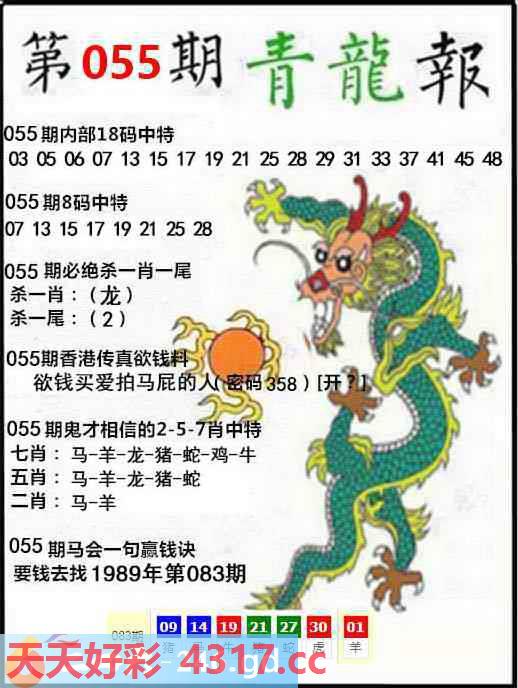 第055期青龍報
055期内部18码中特
03 05 06 07 13 15 17 19 21 25 28 29 31 33 37 41 45 48
055期8码中特
07 13 15 17 19 21 25 28
055期必绝杀一肖一尾
杀一肖：（龙）
杀一尾：（2）
055期香港传真欲钱料
欲钱买爱拍马屁的人(密码358)[开?]
055期鬼才相信的2-5-7肖中特
七肖： 马-羊-龙-猪-蛇-鸡-牛
五肖： 马-羊-龙-猪-蛇
二肖： 马-羊
055期马会一句赢钱诀
要钱去找1989年第083期
083期 09 14 19 21 27 30 01
猪 牛 蛇 虎 羊
天天好彩 4317.cc